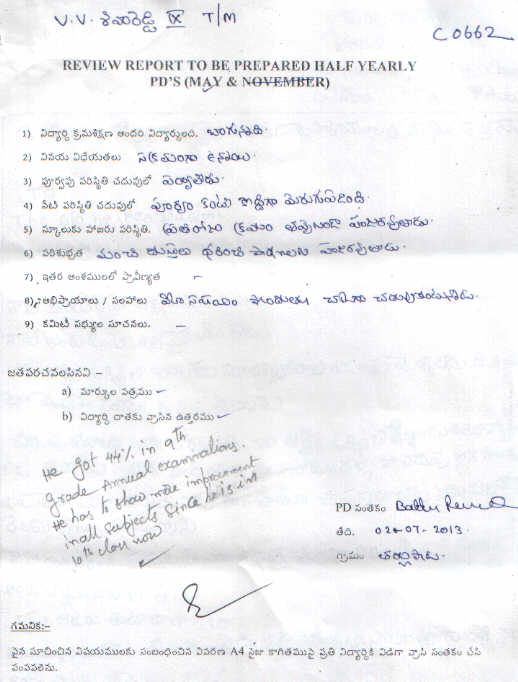 V.V. శివారెడ్డి IX T/M
C0662
REVIEW REPORT TO BE PREPARED HALF YEARLY
PD'S (MAY & NOVEMBER)
1) విద్యార్థి క్రమశిక్షణ అందరి విద్యార్థులది. బాగున్నది
2) వినయ విధేయతలు సక్రమంగా ఉన్నాయి.
3) పూర్వపు పరిస్థితి చదువులో
4) నేటి పరిస్థితి చదువులో పూర్వం కంటే కొద్దిగా మెరుగుపడింది
5) స్కూలుకు హాజరు పరిస్థితి. ప్రతిరోజు క్రమం తప్పకుండా హాజరవుతాడు.
6) పరిశుభ్రత మంచి దుస్తులు ధరించి పాఠశాలకు హాజరవుతాడు.
7) ఇతర అంశములలో ప్రావీణ్యత -
8) అభిప్రాయాలు / సలహాలు బాగా చదువుకుంటున్నాడు.
9) కమిటీ సభ్యుల సూచనలు. -
జతపరచవలసినవి :-
a) మార్కుల పత్రము
b) విద్యార్థి దాతకు వ్రాసిన ఉత్తరము
He got 44% in 9th
grade Annual examinations.
He has to show more improvement
in all subjects since he is in
10th class now
PD సంతకం
తేది. 02-07-2013
గ్రామం
గమనిక:-
పైన సూచించిన విషయములకు సంబంధించిన వివరణ A4 సైజు కాగితముపై ప్రతి విద్యార్థికి విడిగా వ్రాసి సంతకం చేసి
పంపవలెను.